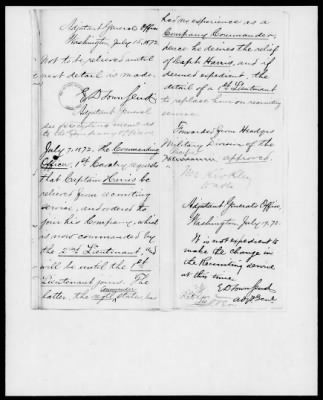 Adjutant General's Office
Washington, July 15, 1872.
Not to be relieved until
next detail is made.
E D Townsend
Adjutant General
July 11, 1872, the Commanding
Officer, 1st Cavalry, requests
that Captain Harris be
relieved from recruiting
service, and ordered to
join his Company, which
is now commanded by
the 2nd Lieutenant, and
will be until the 1st
Lieutenant joins. The
latter, the commander states, has
had no experience as a
Company Commander,
hence he desires the relief
of Capt Harris, and if
deemed expedient, the
detail of a 1st Lieutenant
to replace him on recruiting
service.
Forwarded from Hdqrs
Military Division of the
Pacific
approved.
Adjutant General's Office,
Washington, July 19, 72.
It is not expedient to
make the change in
the Recruiting service
at this time.
E D Townsend
Adjt Genl.